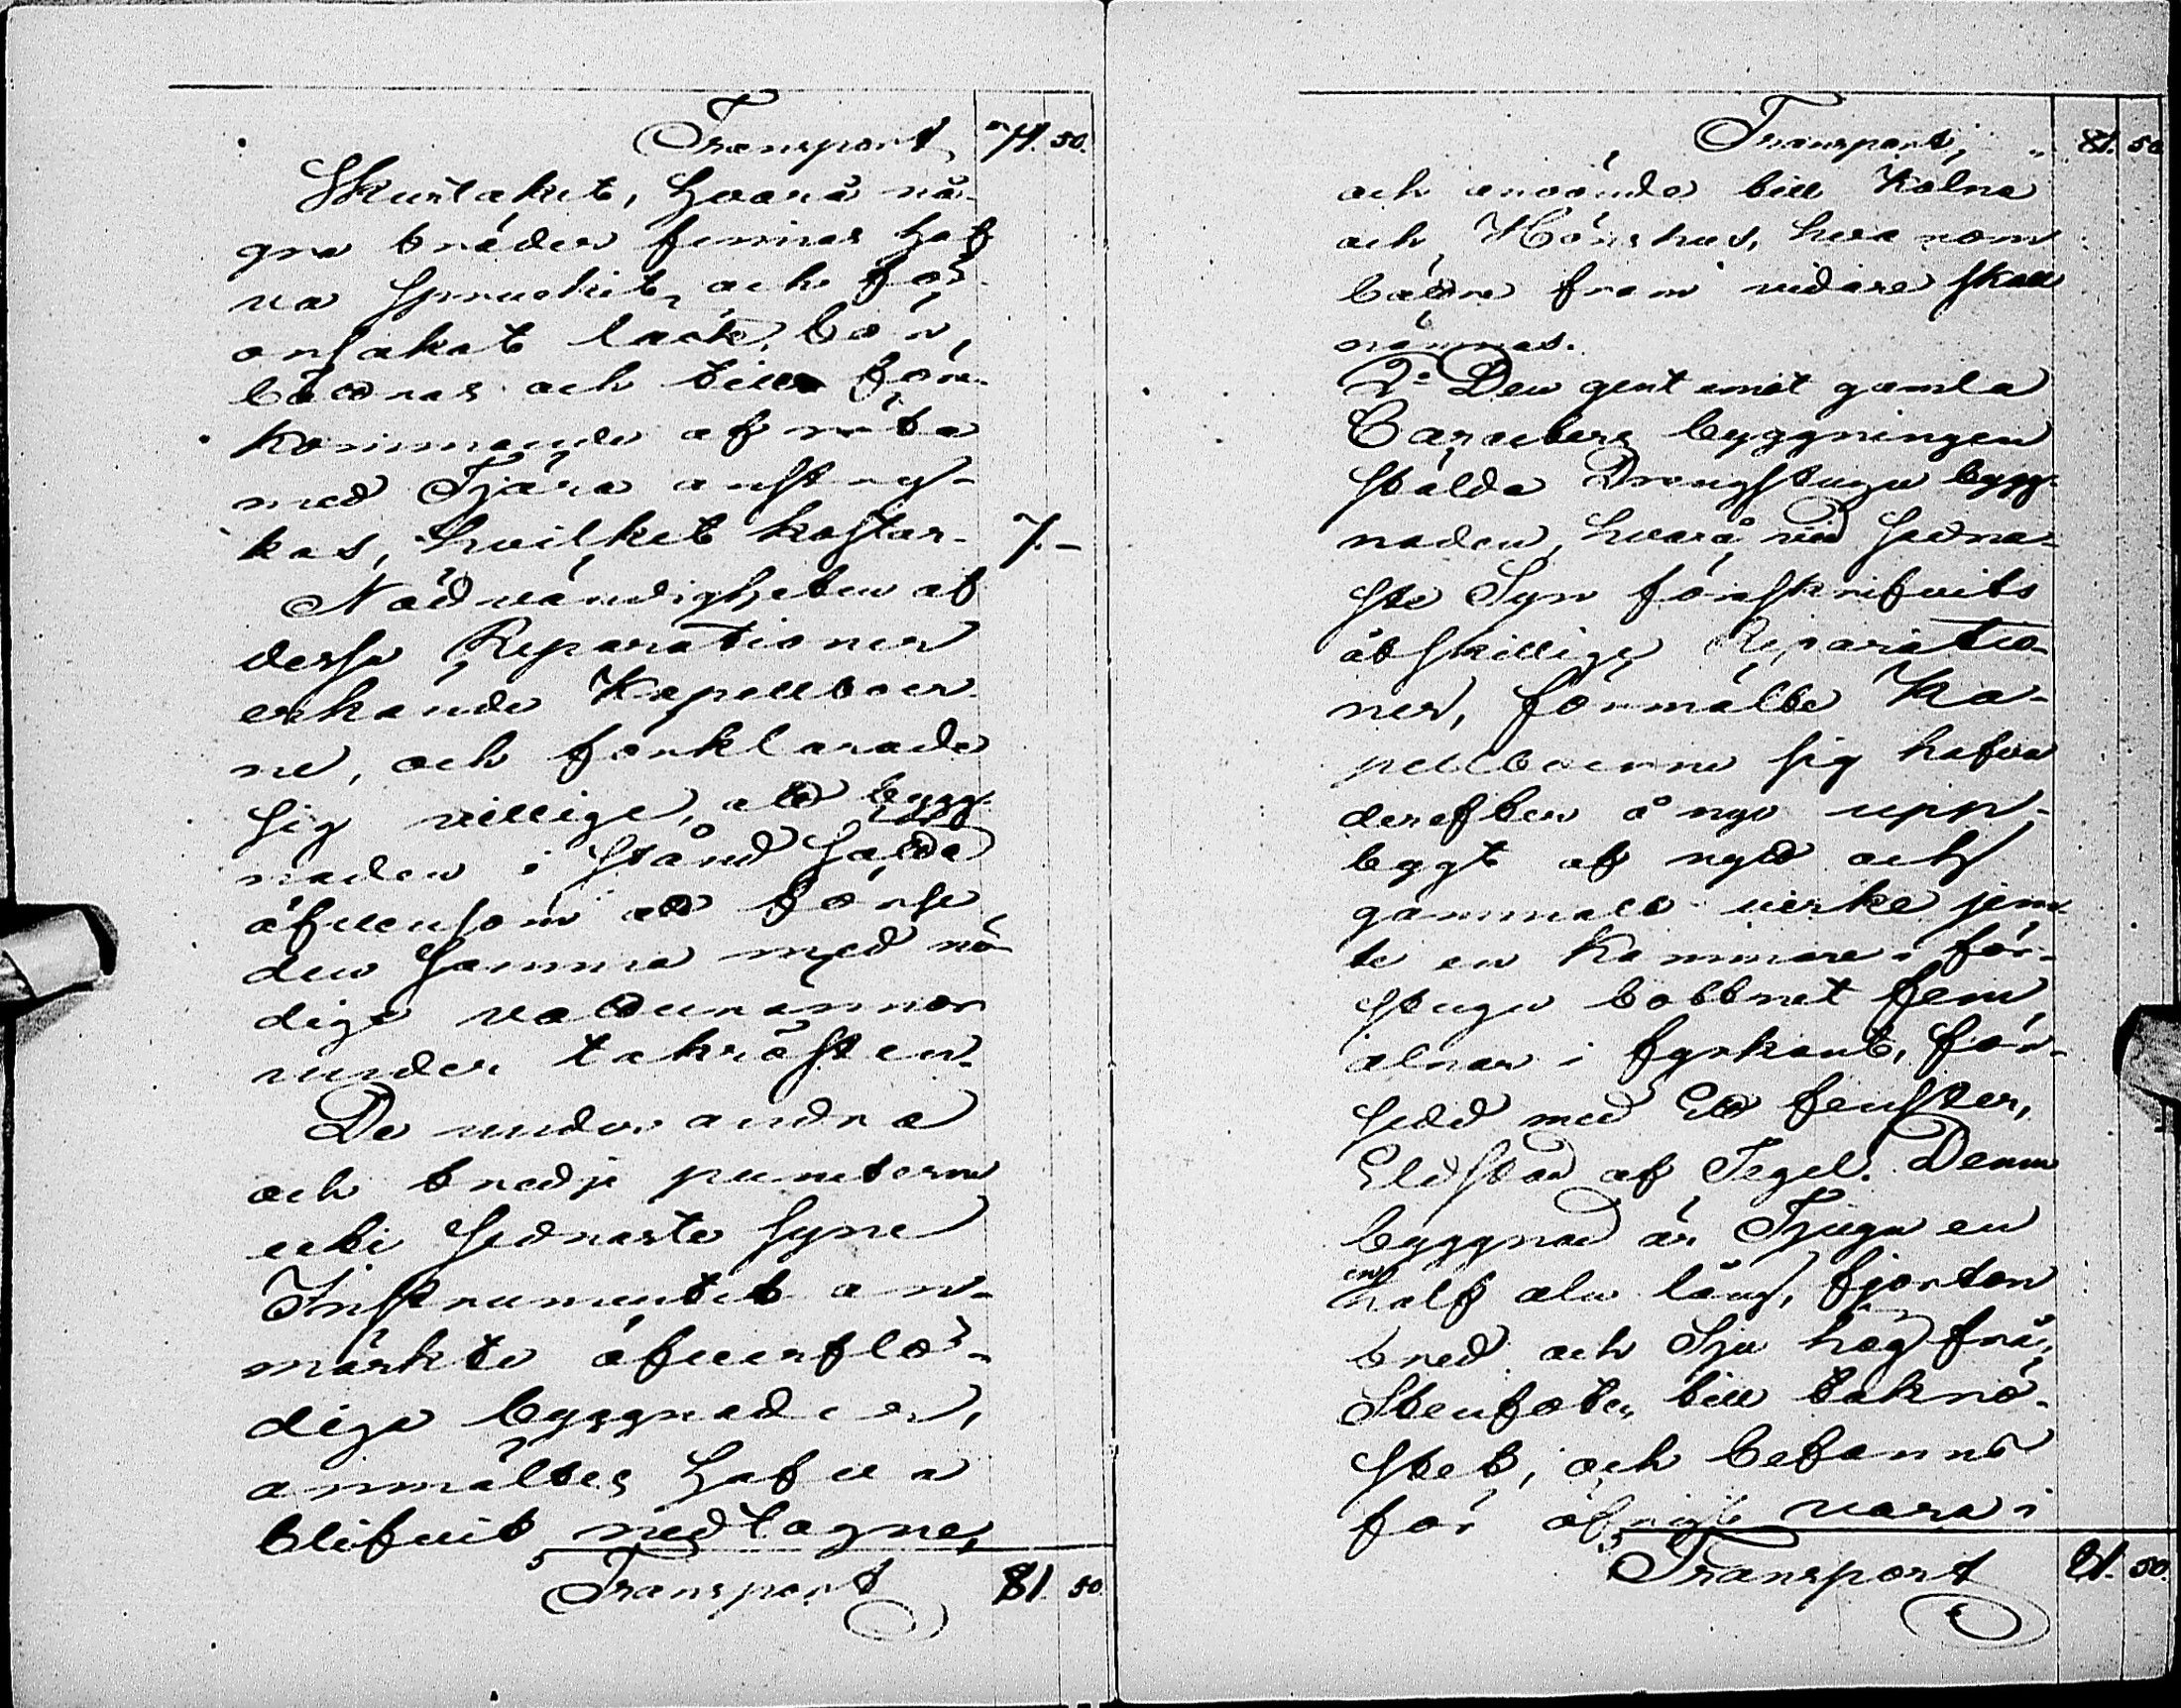 Transport 74. 50.
Skurtaket, hvarå nå-
gra bräder finnas haf-
va spruckit, och för-
orsakat läck, bör,
bättras och till före-
kommande af röta
med Tjära anstry-
kas, hvilket kostar 7. -
Nödvändigheten af
dessa Reparationer
erkände Kapellboer-
ne, och förklarade
sig villige, att bygg-
naden i stånd sätta
äfvensom att förse
den samma med nö-
diga vatturännor
under takrösten.
De under andra
och tredje puncterne
uti sednaste Syne
Instrumentet an-
märkte öfverflö-
diga byggnader,
anmältes hafva
blifvit nedtagne,
Transport 81. 50
Transport, 81. 50
och använda till Kölna
och Hönshus, hvarom
bättre fram vidare skall
nämnas.
2o Den gent emot gamla
byggningen
stälda Drängstugu bygg-
naden, hvarå vid sedna-
ste Syn förskrifvits
åtskillige Reparatio-
ner, förmälte Ka-
pellboerne sig hafva
derefter å nyo upp-
bygt af nytt och
gammalt virke jem-
te en Kammare i för-
stugu bottnet fem
alnar i fyrkant, för-
sedd med Ett fenster,
Eldstad af Tegel. Denna
byggnad är Tjugu en
en half aln lång, fjorton
bred och Sju hög från
Stenfoten till takrö-
stet, och befanns
för öfrigt vara i
Transport 81. 50.